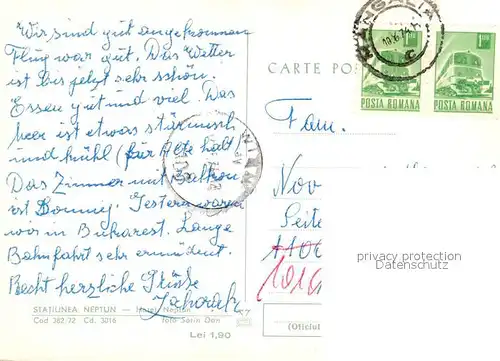 Wir sind gut angekommen
Flug war gut. Das Wetter
ist bis jetzt sehr schön.
Essen gut und viel. Das
Meer ist etwas stürmisch
und kühl (für Otto halt
Das Zimmer mit Balkon
ist sonnig. Gestern waren
wir in Bukarest. Lange
Bahnfahrt sehr ermüdent.
Recht herzliche Grüße
STAȚIUNEA NEPTUN — Hotel Neptun
Cod 382/72 Cd. 3016 foto Sorin Dan
Lei 1,90
CARTE PO
MANGALIA
POSTA ROMANA
POSTA ROMANA
Fam.
Nov
Seite
1100
101
privacy protection
watermark
(Oficiul